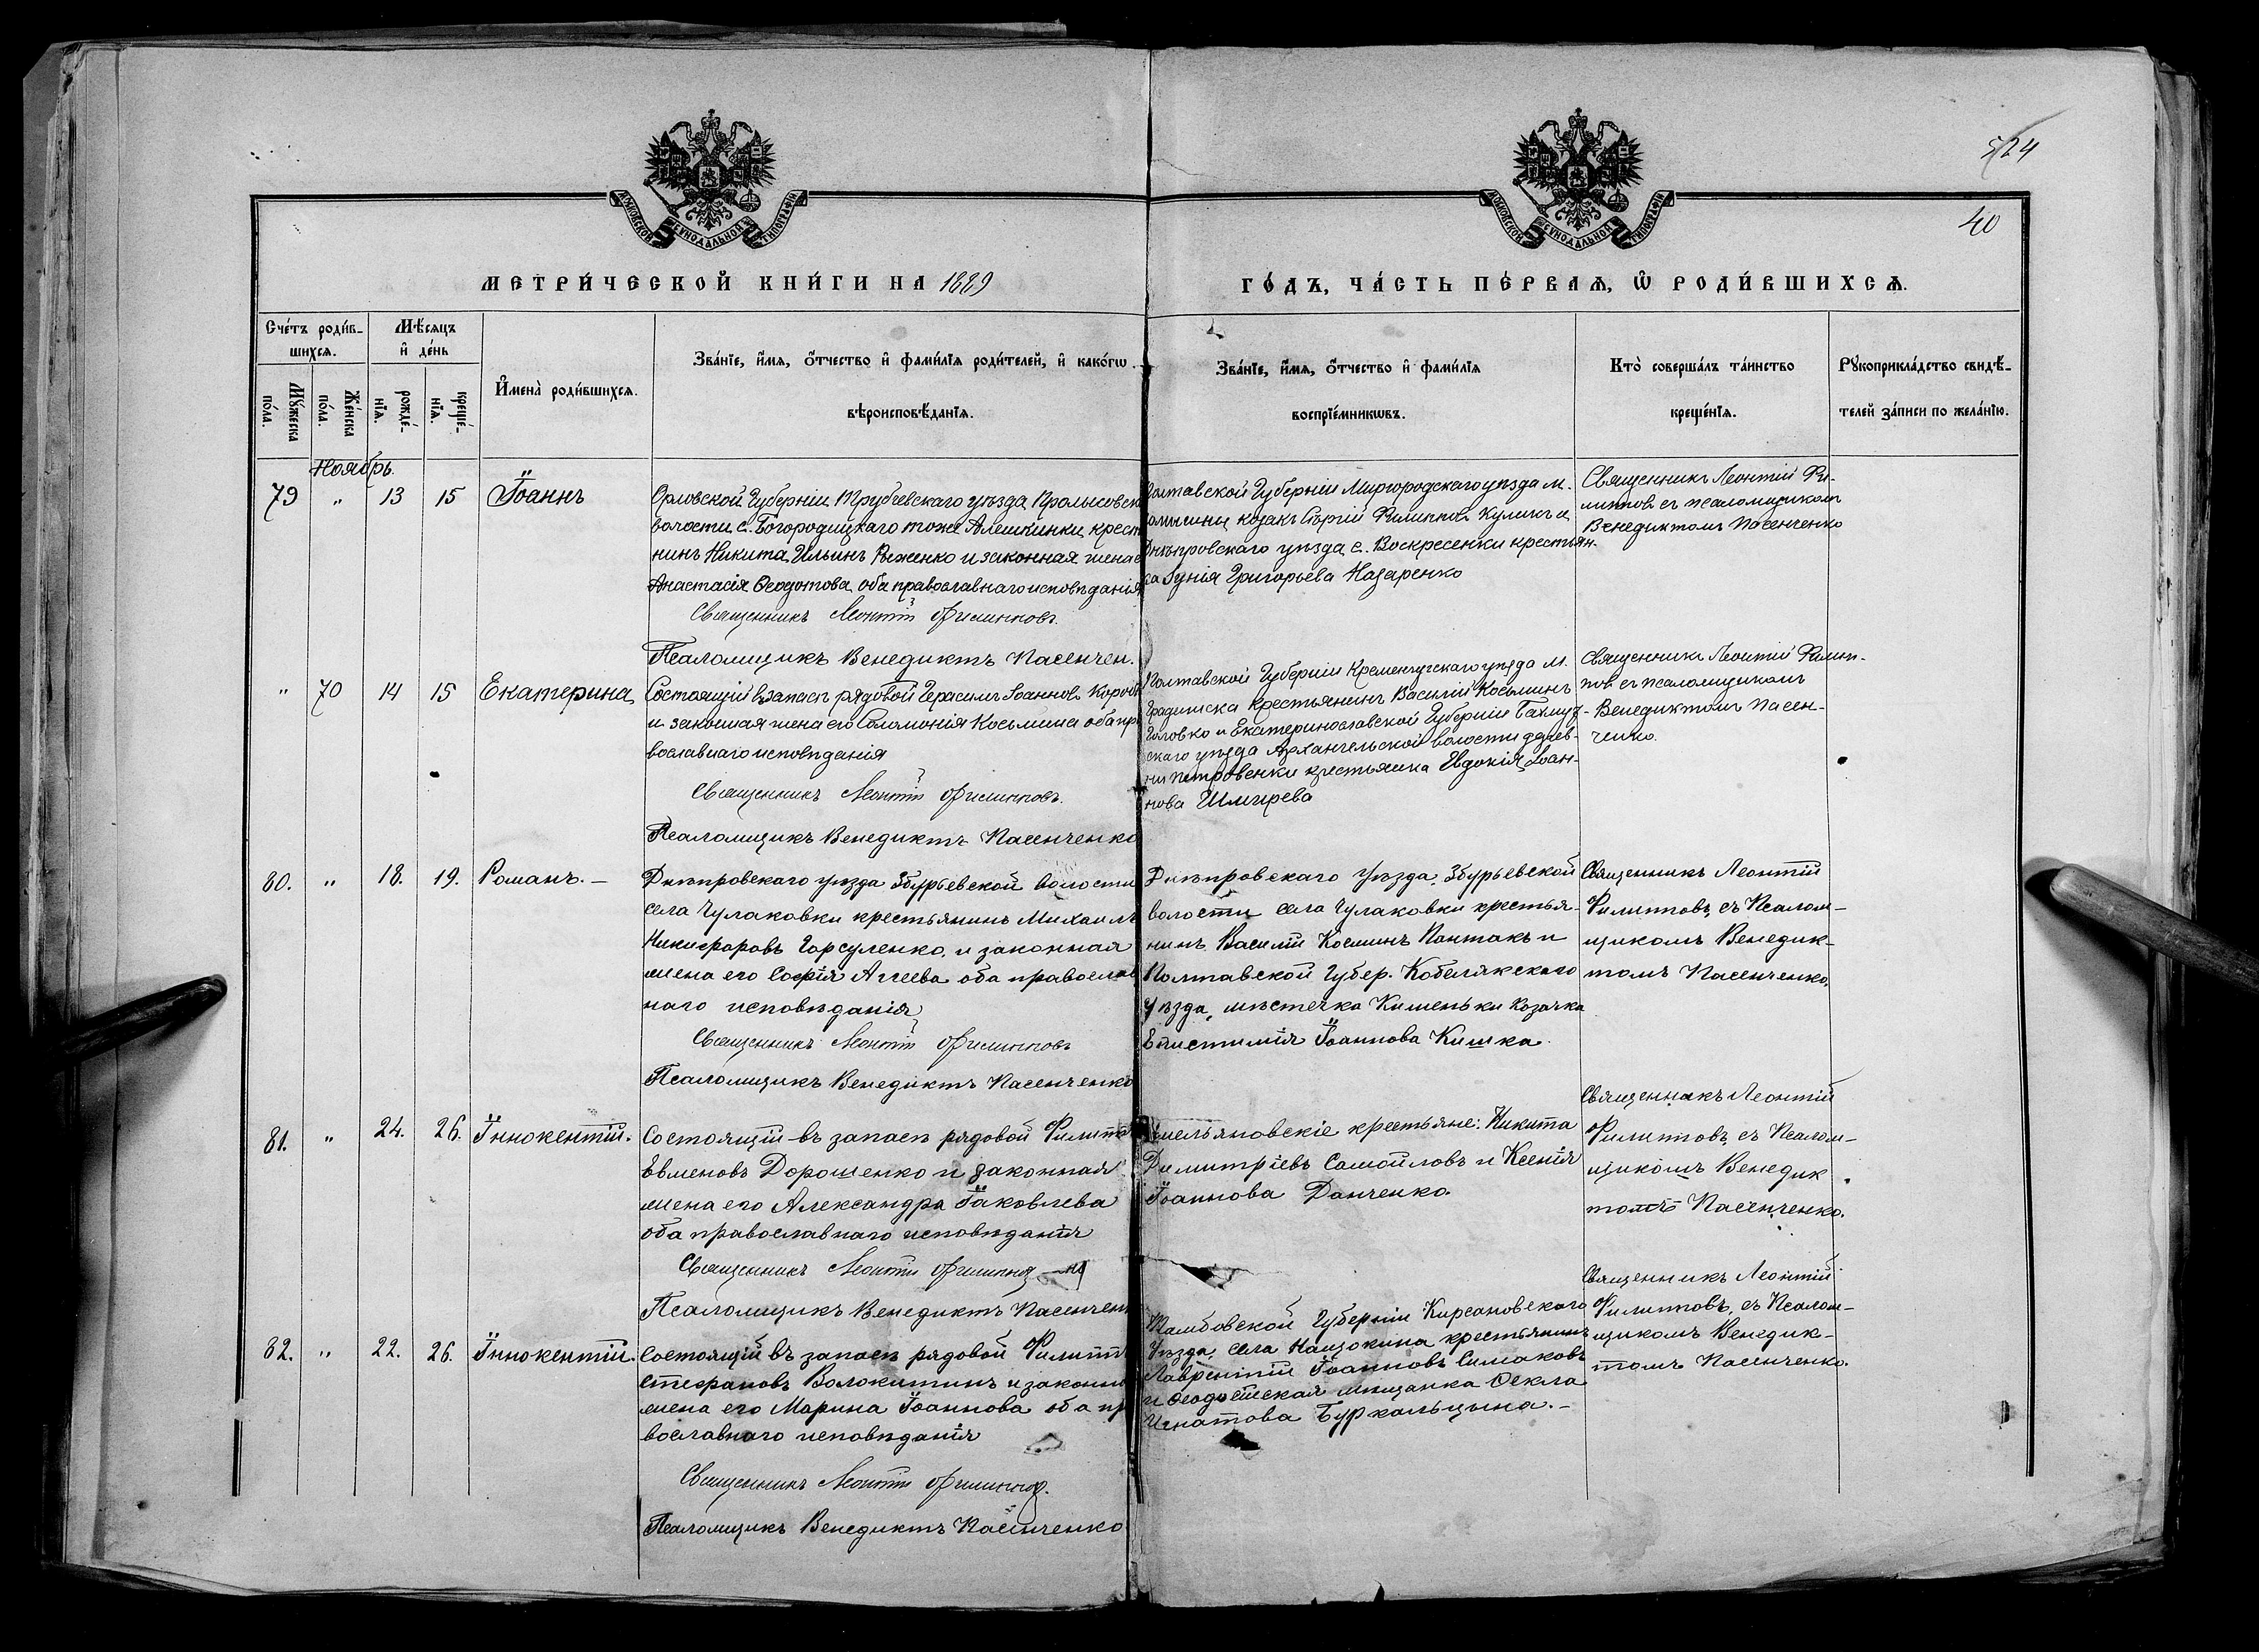 524
40
МОСКОВСКОЙ СѴНОДАЛЬНОЙ ТИПОГРАФІИ
МОСКОВСКОЙ СѴНОДАЛЬНОЙ ТИПОГРАФІИ
МЕТРИ́ЧЕСКОЙ КНИ́ГИ НА 1889
ГО́ДЪ, ЧА́СТЬ ПЕ́РВАѦ, Ѽ РОДИ́ВШИХСѦ.
Сче́тъ роди́в-
шихсѧ.
Мѣ́сяцъ
и҆ де́нь
Мꙋ́жеска
по́ла.
Же́нска
по́ла.
рожде́-
нїѧ.
креще́-
нїѧ.
И҆мена̀ роди́вшихсѧ.
Зва́нїе, и҆́мѧ, ѻ҆́тчество и҆ фами́лїѧ роди́телей, и҆ како́гѡ
вѣроисповѣ́данїѧ.
Зва́нїе, и҆́мѧ, ѻ҆́тчество и҆ фами́лїѧ
воспрїе́мникѡвъ.
Кто̀ соверша́лъ та́инство
креще́нїѧ.
Рꙋкоприкла́дство свидѣ́-
телей за́писи по жела́нїю.
Ноябрь.
79 " 13 15 Іоаннъ
Орловской Губерніи Трубчевскаго уѣзда
волости с. Богородицкаго тоже Алешкинки крест
нинъ Никита Ильинъ и законная жена е
Анастасія Ѳеодотова оба православнаго исповѣданія
Священникъ Леонтій Филипповъ.
Псаломщикъ Венедиктъ Пасенчен.
Полтавской Губерніи Миргородскаго уѣзда м.
козакъ Сергій Филипповъ Куликъ и
Днѣпровскаго уѣзда с. Воскресенки крестьян.
ка Григорьева Назаренко
Священникъ Леонтій Фи-
липповъ съ псаломщикомъ
Венедиктомъ Пасенченко
" 70 14 15 Екатерина
Состоящій въ запасѣ рядовой Герасимъ Іоанновъ
и законная жена его Соломонія Косьмина оба пр
вославнаго исповѣданія
Священникъ Леонтій Филипповъ.
Псаломщикъ Венедиктъ Пасенченко
Полтавской Губерніи Кременчугскаго уѣзда м.
Градижска крестьянинъ Василій Косьминъ
Головко и Екатеринославской Губерніи Бахмут-
скаго уѣзда Архангельской волости дерев-
ни Петровенки крестьянка Евдокія Іоан-
нова Шмырева
Священникъ Леонтій Филип-
повъ съ псаломщикомъ
Венедиктомъ Пасен-
ченко.
80. " 18. 19. Романъ. —
Днѣпровскаго уѣзда Збурьевской волости
села Чулаковки крестьянинъ Михаилъ
Никифоровъ Горсуленко, и законная
жена его Софія Агеева оба православ
наго исповѣданія
Священникъ Леонтій Филипповъ
Псаломщикъ Венедиктъ Пасенченко
Днѣпровскаго уѣзда, Збурьевской
волости села Чулаковки крестья-
нинъ Василій Косминъ Пантакъ и
Полтавской Губер. Кобелякскаго
уѣзда, мѣстечка Кишеньки Козачка
Іоаннова Кишка.
Священникъ Леонтій
Филипповъ, съ Псалом-
щикомъ Венедик-
томъ Пасенченко.
81. " 24. 26. Іннокентій.
Состоящій въ запасѣ рядовой Филипп
Евменовъ Дорошенко и законная
жена его Александра Іаковлева
оба православнаго исповѣданія
Священникъ Леонтій Филиппов
Псаломщикъ Венедиктъ Пасенчен
Емельяновскіе крестьяне: Никита
Димитріевъ Самойловъ и Ксенія
Іоаннова Данченко.
Священникъ Леонтій
Филипповъ, съ Псалом-
щикомъ Венедик
томъ Пасенченко.
82. " 22. 26. Іннокентій.
Состоящій въ запасѣ рядовой Филипп
Стефановъ Волокитинъ и законн
жена его Марина Іоаннова оба пр
вославнаго исповѣданія
Священникъ Леонтій Филиппов.
Псаломщикъ Венедиктъ Пасенченко
Тамбовской Губерніи Кирсановскаго
Уѣзда, села Нащокина крестьянинъ
Лаврентій Іоанновъ Симаковъ
и Ѳеодосійская мѣщанка Ѳекла
Игнатова Буркальцына. —
Священникъ Леонтій
Филипповъ, съ Псалом-
щикомъ Венедик-
томъ Пасенченко.